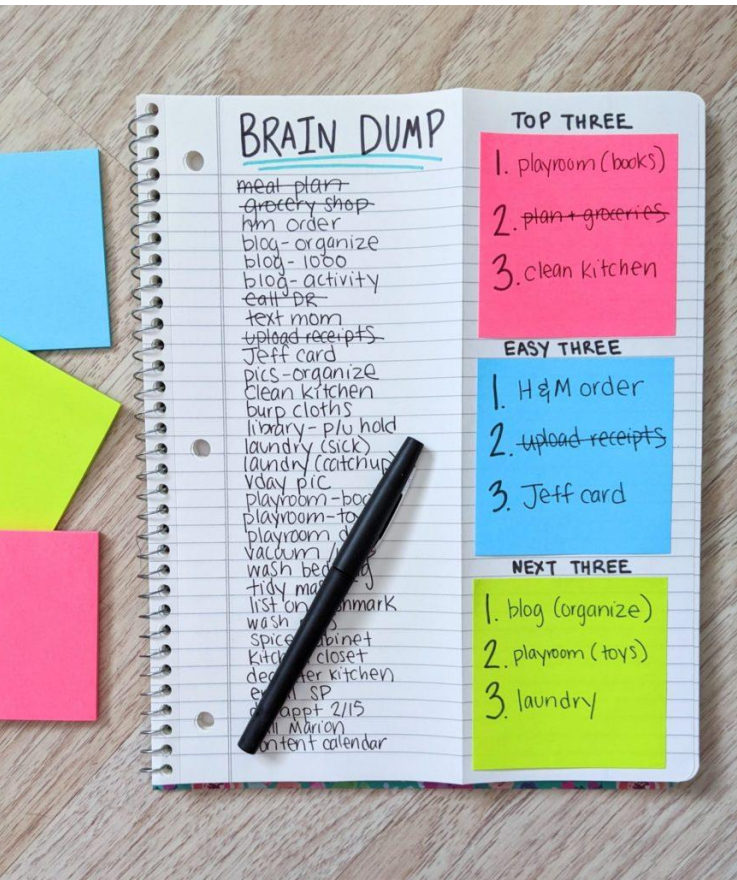 BRAIN DUMP
meal plan
grocery shop
hm order
blog-organize
blog-1000
blog-activity
call DR
text mom
upload receipts
Jeff card
pics-organize
clean kitchen
burp cloths
library-p/u hold
laundry (sick)
laundry (catchup)
vday pic
playroom-
playroom-
playroom
vacuum
wash
tidy
list on
wash
spice
closet
kitchen
SP
appt 2/15
Marion
calendar
TOP THREE
1. playroom (books)
2. plan + groceries
3. clean kitchen
EASY THREE
1. H&M order
2. upload receipts
3. Jeff card
NEXT THREE
1. blog (organize)
2. playroom (toys)
3. laundry